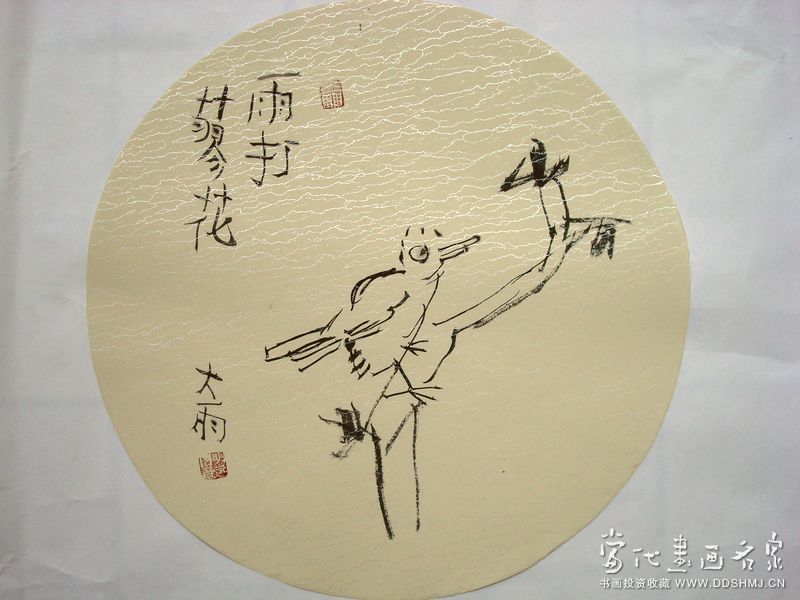 雨打
蓼花
大雨
當代書画名家
书画投资收藏 WWW.DDSHMJ.CN